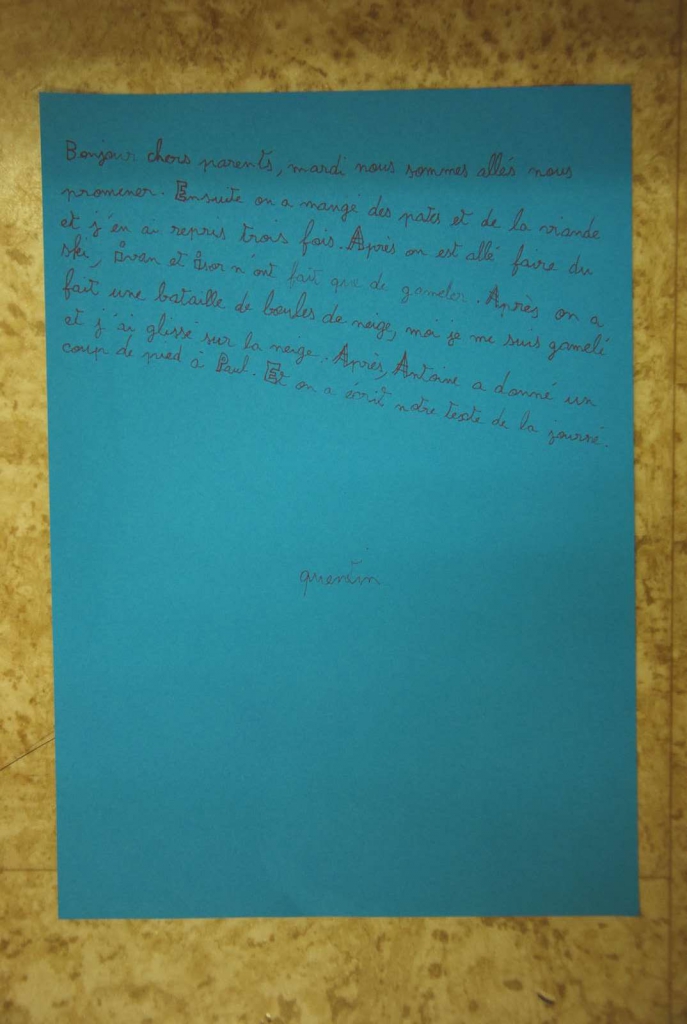 Bonjour chers parents, mardi nous sommes allés nous
promener. Ensuite on a mangé des pates et de la viande
et j'en ai repris trois fois. Après on est allé faire du
ski, et n'ont fait que de gameler. Après on a
fait une bataille de boules de neige, moi je me suis gamelé
et j'ai glissé sur la neige. Après, Antoine a donné un
coup de pied à Paul. Et on a écrit notre texte de la journé.
quentin